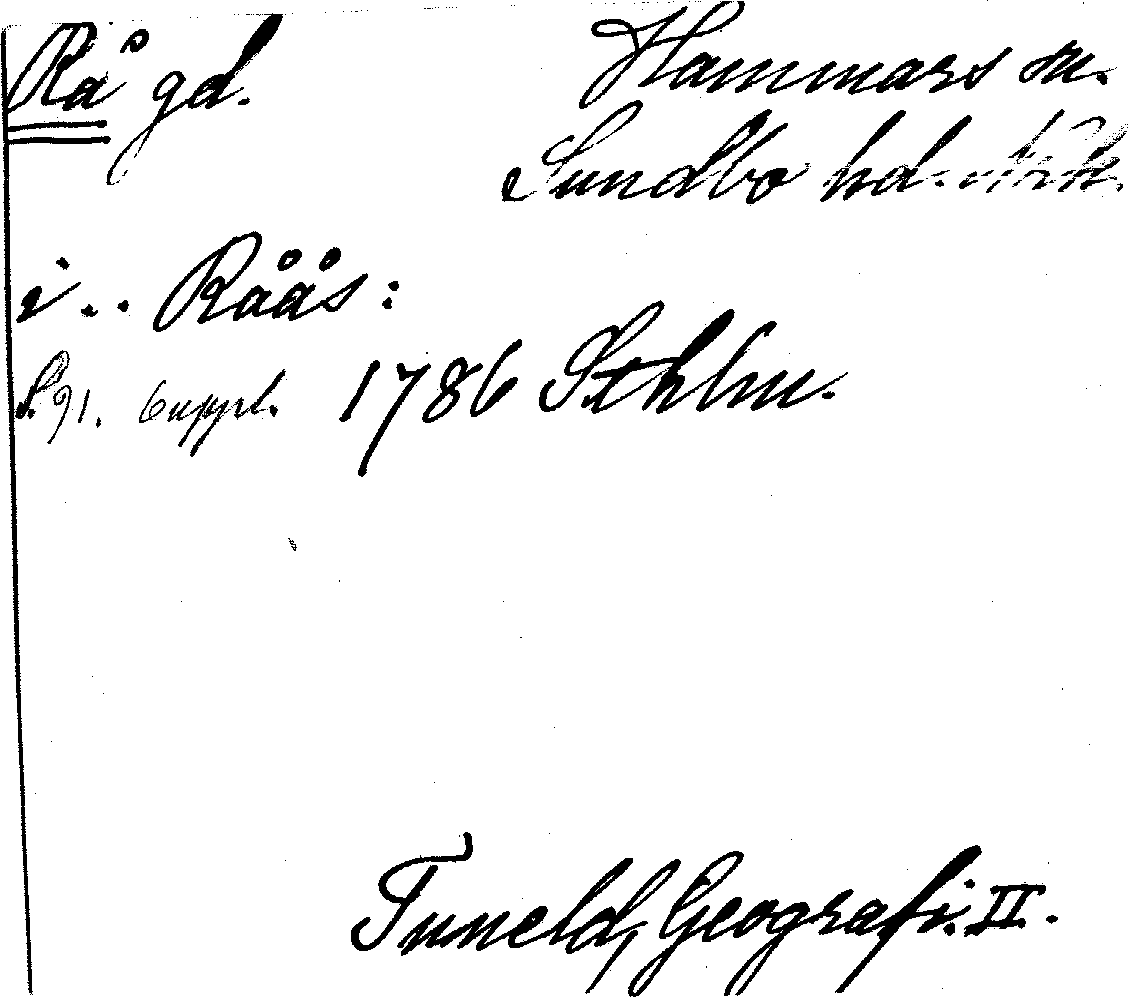 Rå gd.
Hammars sn.
Sundbo hd. Närk.
i.. Råås:
S. 91. 6 uppl. 1786 Sthlm.
Tuneld, Geografi. II.